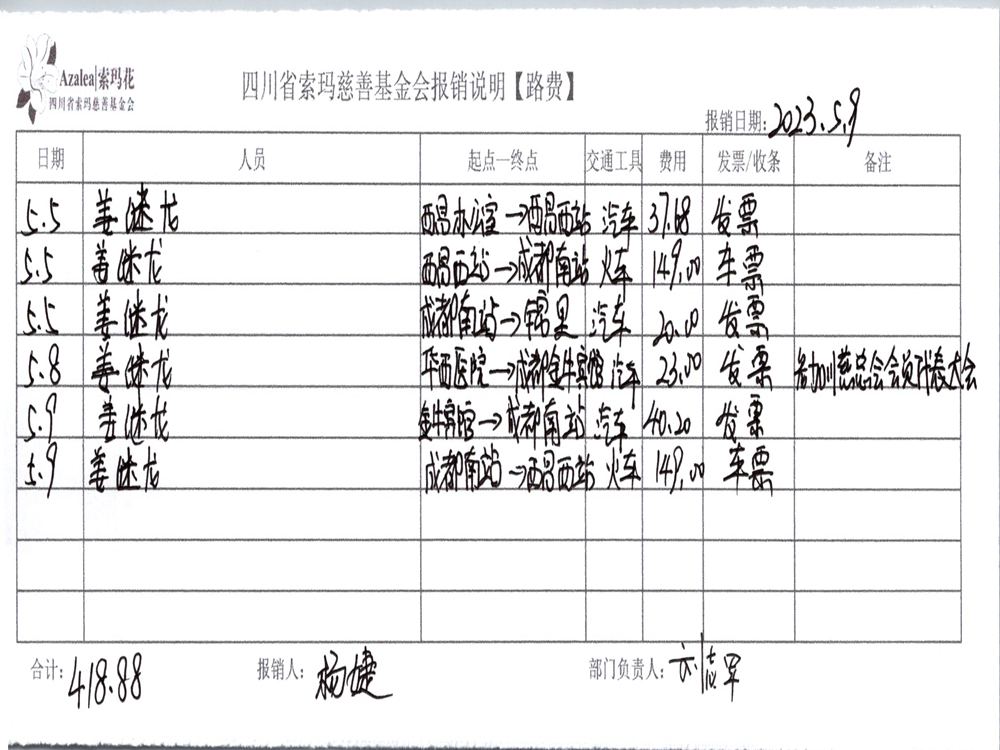 Azalea|索玛花
四川省索玛慈善基金会
四川省索玛慈善基金会报销说明【路费】
报销日期: 2023.5.9
日期 人员 起点—终点 交通工具 费用 发票/收条 备注
5.5 姜继龙 西昌办公室→西昌西站 汽车 37.68 发票
5.5 姜继龙 西昌西站→成都南站 火车 149.00 车票
5.5 姜继龙 成都南站→锦里 汽车 20.00 发票
5.8 姜继龙 华西医院→成都金牛宾馆 汽车 23.00 发票 参加川慈总会会员代表大会
5.9 姜继龙 金牛宾馆→成都南站 汽车 40.20 发票
5.9 姜继龙 成都南站→西昌西站 火车 149.00 车票
合计: 418.88 报销人: 杨婕 部门负责人: